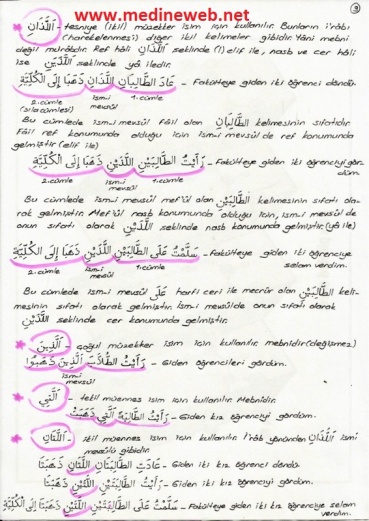 www.medineweb.net
9
اَللَّذَانِ - tesniye (ikil) müzekker isim için kullanılır. Bunların i'râbı
(harekelenmesi) diğer ikil kelimeler gibidir. Yâni mebni
değil mürâbdır. Ref hâli اَللَّذَانِ şeklinde (!) elif ile, nasb ve cer hâli
ise اَللَّذَيْنِ ya iledir.
عَادَ الطَّالِبَانِ اللَّذَانِ ذَهَبَا إِلَى الْكُلِّيَّةِ - Fakülteye giden iki öğrenci döndü.
2.cümle (sıla cümlesi) ism-i mevsûl 1.cümle
Bu cümlede ism-i mevsûl fâil olan الطَّالِبَانِ kelimesinin sıfatıdır.
Fâil ref konumunda olduğu için ism-i mevsûl de ref konumunda
gelmiştir (elif ile)
رَأَيْتُ الطَّالِبَيْنِ اللَّذَيْنِ ذَهَبَا إِلَى الْكُلِّيَّةِ - Fakülteye giden iki öğrenciyi gör-
düm.
2.cümle ism-i mevsûl 1.cümle
Bu cümlede ism-i mevsul mef'ûl olan الطَّالِبَيْنِ kelimesinin sıfatı ola-
rak gelmiştir. Mef'ûl nasb konumunda olduğu için, ism-i mevsûl de
onun sıfatı olarak اَللَّذَيْنِ şeklinde nasb konumunda gelmiştir. (ya ile)
سَلَّمْتُ عَلَى الطَّالِبَيْنِ اللَّذَيْنِ ذَهَبَا إِلَى الْكُلِّيَّةِ - Fakülteye giden iki öğrenciye
selam verdim.
2.cümle ism-i mevsûl 1.cümle
Bu cümlede ism-i mevsul عَلَى harfi ceri ile mecrûr olan الطَّالِبَيْنِ keli-
mesinin sıfatı olarak gelmiştir. İsm-i mevsûlde onun sıfatı olarak
اَللَّذَيْنِ şeklinde cer konumunda gelmiştir.
اَلَّذِينَ - çoğul müzekker isim için kullanılır. mebnidir (değişmez)
رَأَيْتُ الطُّلَّابَ الَّذِينَ ذَهَبُوا - Giden öğrencileri gördüm.
ism-i mevsul
اَلَّتِي - tekil müennes isim için kullanılır. Mebnidir.
رَأَيْتُ الطَّالِبَةَ الَّتِي ذَهَبَتْ - Giden kız öğrenciyi gördüm.
اَللَّتَانِ - ikil müennes isim için kullanılır. İ'râb yönünden اَللَّذَانِ ismi
mevsûlü gibidir.
عَادَتِ الطَّالِبَتَانِ اللَّتَانِ ذَهَبَتَا - Giden iki kız öğrenci döndü.
رَأَيْتُ الطَّالِبَتَيْنِ اللَّتَيْنِ ذَهَبَتَا - Giden iki kız öğrenciyi gördüm.
سَلَّمْتُ عَلَى الطَّالِبَتَيْنِ اللَّتَيْنِ ذَهَبَتَا إِلَى الْكُلِّيَّةِ - Fakülteye giden iki kız öğrenciye selam
verdim.